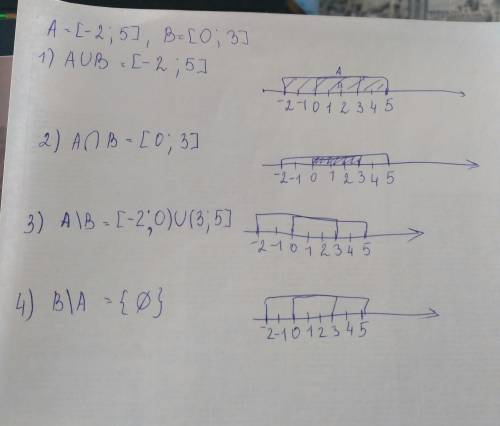 A = [-2; 5], B = [0; 3]
1) A∪B = [-2; 5]
A
B
-2 -1 0 1 2 3 4 5
2) A∩B = [0; 3]
-2 -1 0 1 2 3 4 5
3) A\B = [-2; 0)∪(3; 5]
-2 -1 0 1 2 3 4 5
4) B\A = {∅}
-2 -1 0 1 2 3 4 5